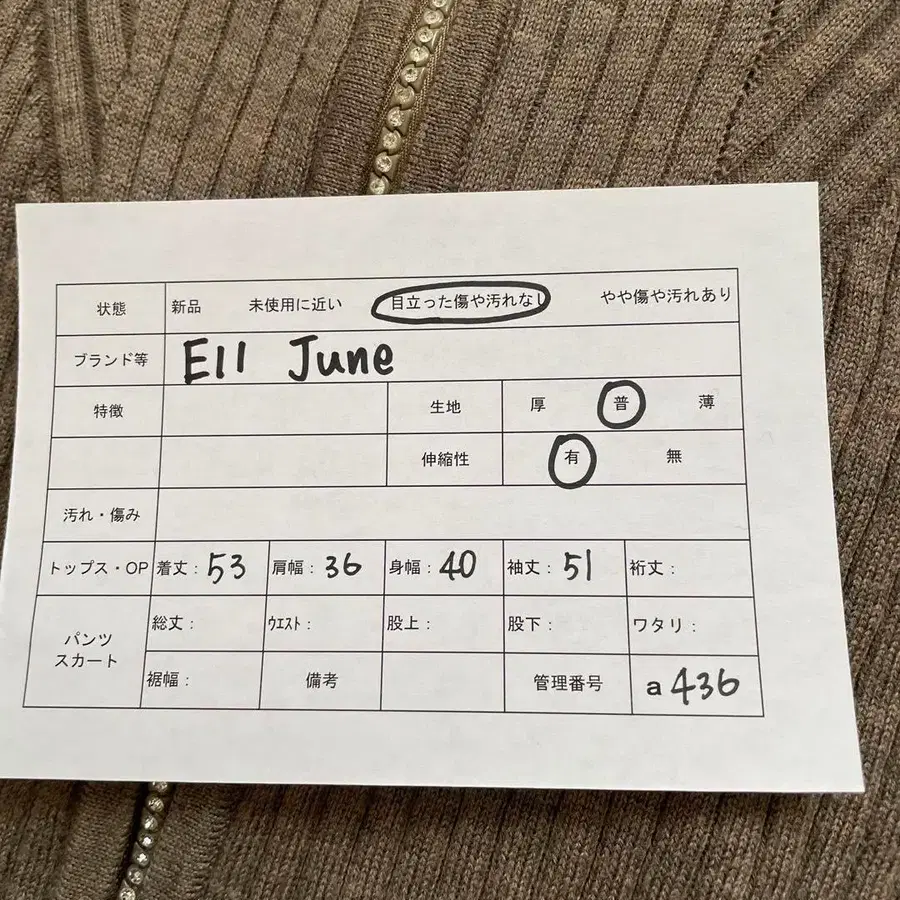 状態 新品 未使用に近い 目立った傷や汚れなし やや傷や汚れあり
ブランド等 Ell June
特徴 生地 厚 普 薄
伸縮性 有 無
汚れ・傷み
トップス・OP 着丈：53 肩幅：36 身幅：40 袖丈：51 裄丈：
パンツ スカート 総丈： ウエスト： 股上： 股下： ワタリ：
裾幅： 備考 管理番号 a436